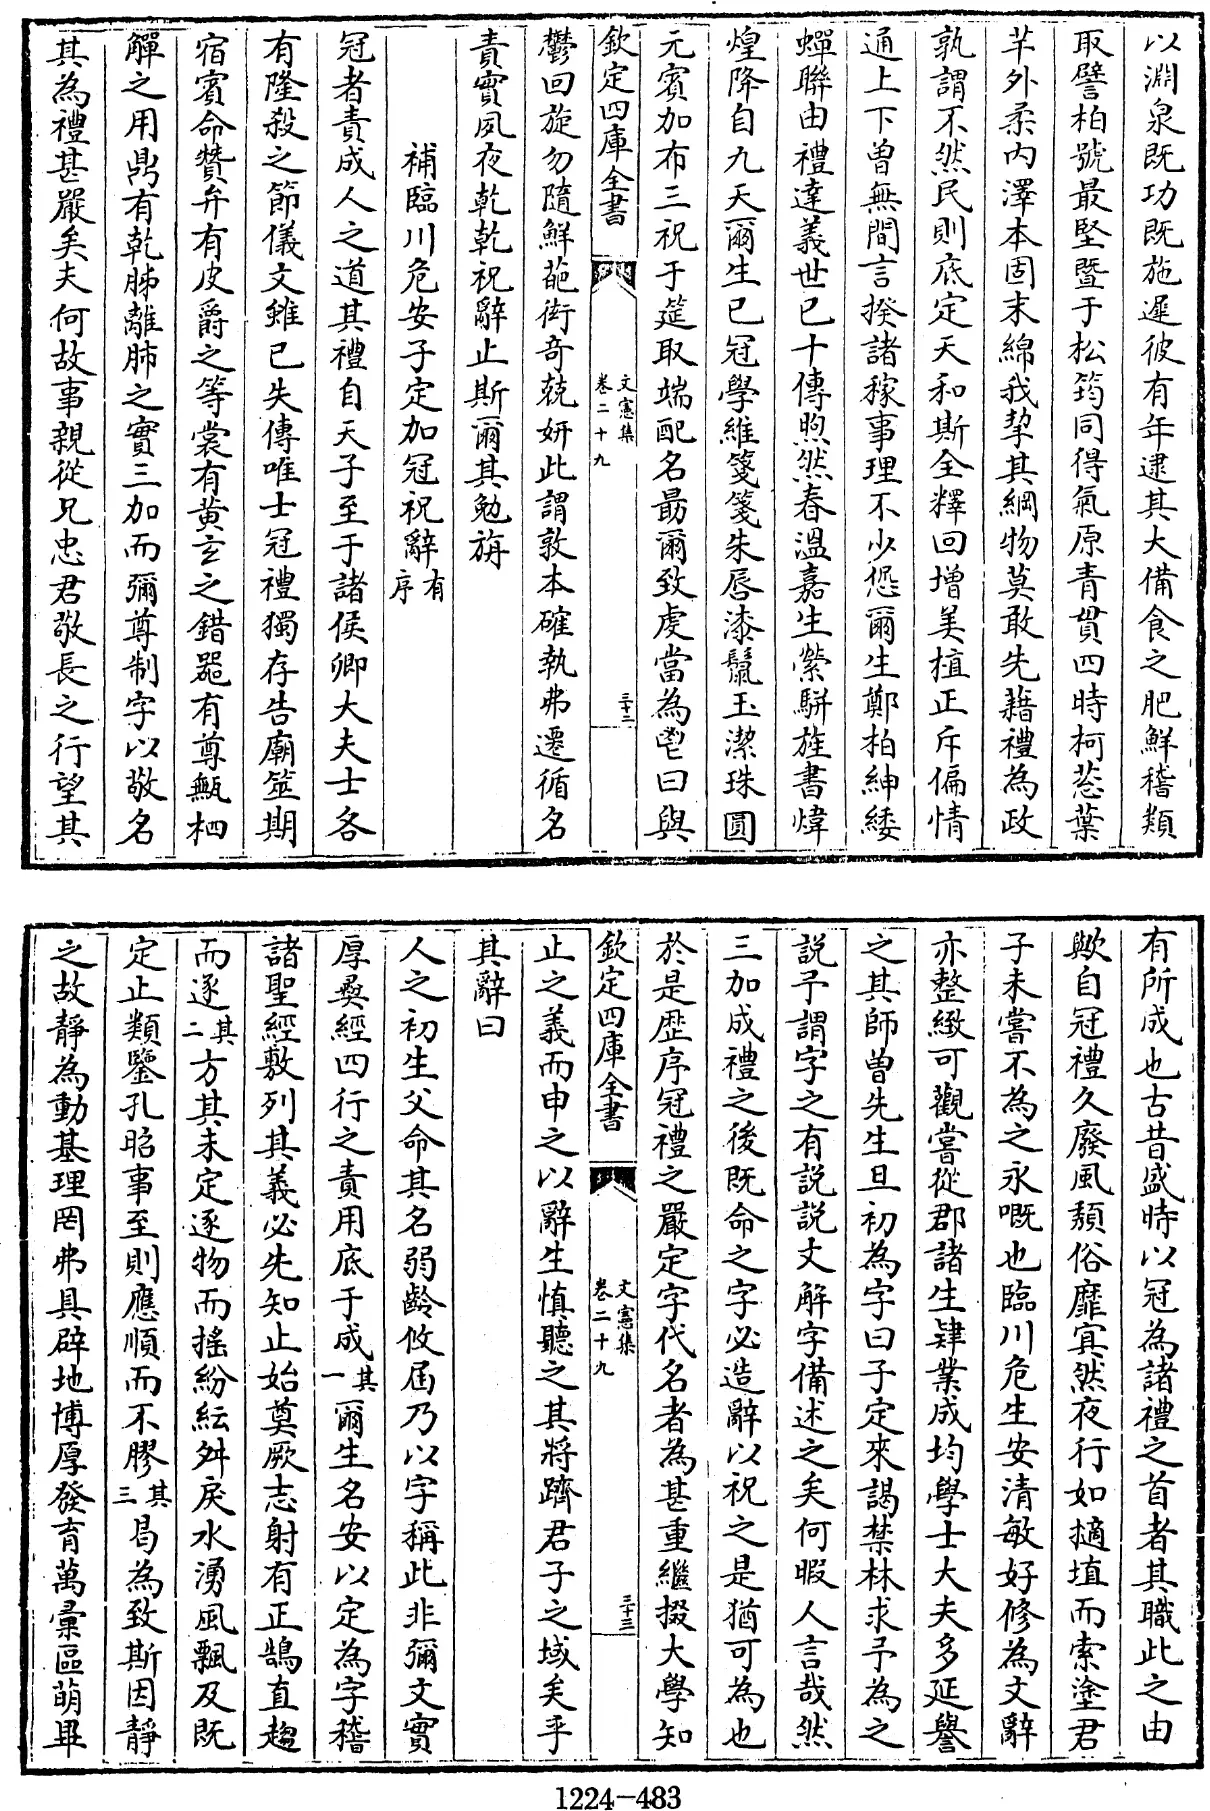 以淵泉既功既施遲彼有年逮其大備食之肥鮮稽類
取譬柏號最堅暨于松筠同得氣原青貫四時柯葱葉
芊外柔内澤本固末綿我挈其綱物莫敢先藉禮為政
孰謂不然民則底定天和斯全釋回增美植正斥偏情
通上下曾無間言揆諸稼事理不少愆爾生鄭柏紳緌
蟬聯由禮達義世已十傳煦然春溫嘉生縈駢旌書煒
煌降自九天爾生已冠學維箋箋朱唇漆鬣玉潔珠圓
元賓加布三祝于筵取端配名勗爾致虔當為鬯曰與
欽定四庫全書
文憲集
卷二十九
三十二
鬱回旋勿隨鮮葩衒奇兢妍此謂敦本確執弗遷循名
責實夙夜乾乾祝辭止斯爾其勉旃
補臨川危安子定加冠祝辭有序
冠者責成人之道其禮自天子至于諸侯卿大夫士各
有隆殺之節儀文雖已失傳唯士冠禮獨存告廟筮期
宿賓命贊弁有皮爵之等裳有黄玄之錯器有尊甒柶
觶之用鼎有乾胏離肺之實三加而彌尊制字以敬名
其為禮甚嚴矣夫何故事親從兄忠君敬長之行望其
有所成也古昔盛時以冠為諸禮之首者其職此之由
歟自冠禮久廢風頽俗靡冥然夜行如擿埴而索塗君
子未嘗不為之永嘅也臨川危生安清敏好修為文辭
亦整緻可觀嘗從郡諸生肄業成均學士大夫多延譽
之其師曾先生旦初為字曰子定來謁禁林求予為之
説予謂字之有説説文解字備述之矣何暇人言哉然
三加成禮之後既命之字必造辭以祝之是猶可為也
於是歴序冠禮之嚴定字代名者為甚重繼掇大學知
欽定四庫全書
文憲集
卷二十九
三十三
止之義而申之以辭生慎聽之其將躋君子之域矣乎
其辭曰
人之初生父命其名弱齡攸届乃以字稱此非彌文實
厚彛經四行之責用底于成其一爾生名安以定為字稽
諸聖經敷列其義必先知止始奠厥志射有正鵠直趨
而逐其二方其未定逐物而揺紛紜舛戾水湧風飄及既
定止類鑒孔昭事至則應順而不膠其三曷為致斯因靜
之故靜為動基理罔弗具辟地博厚發育萬彙區萌畢
1224-483